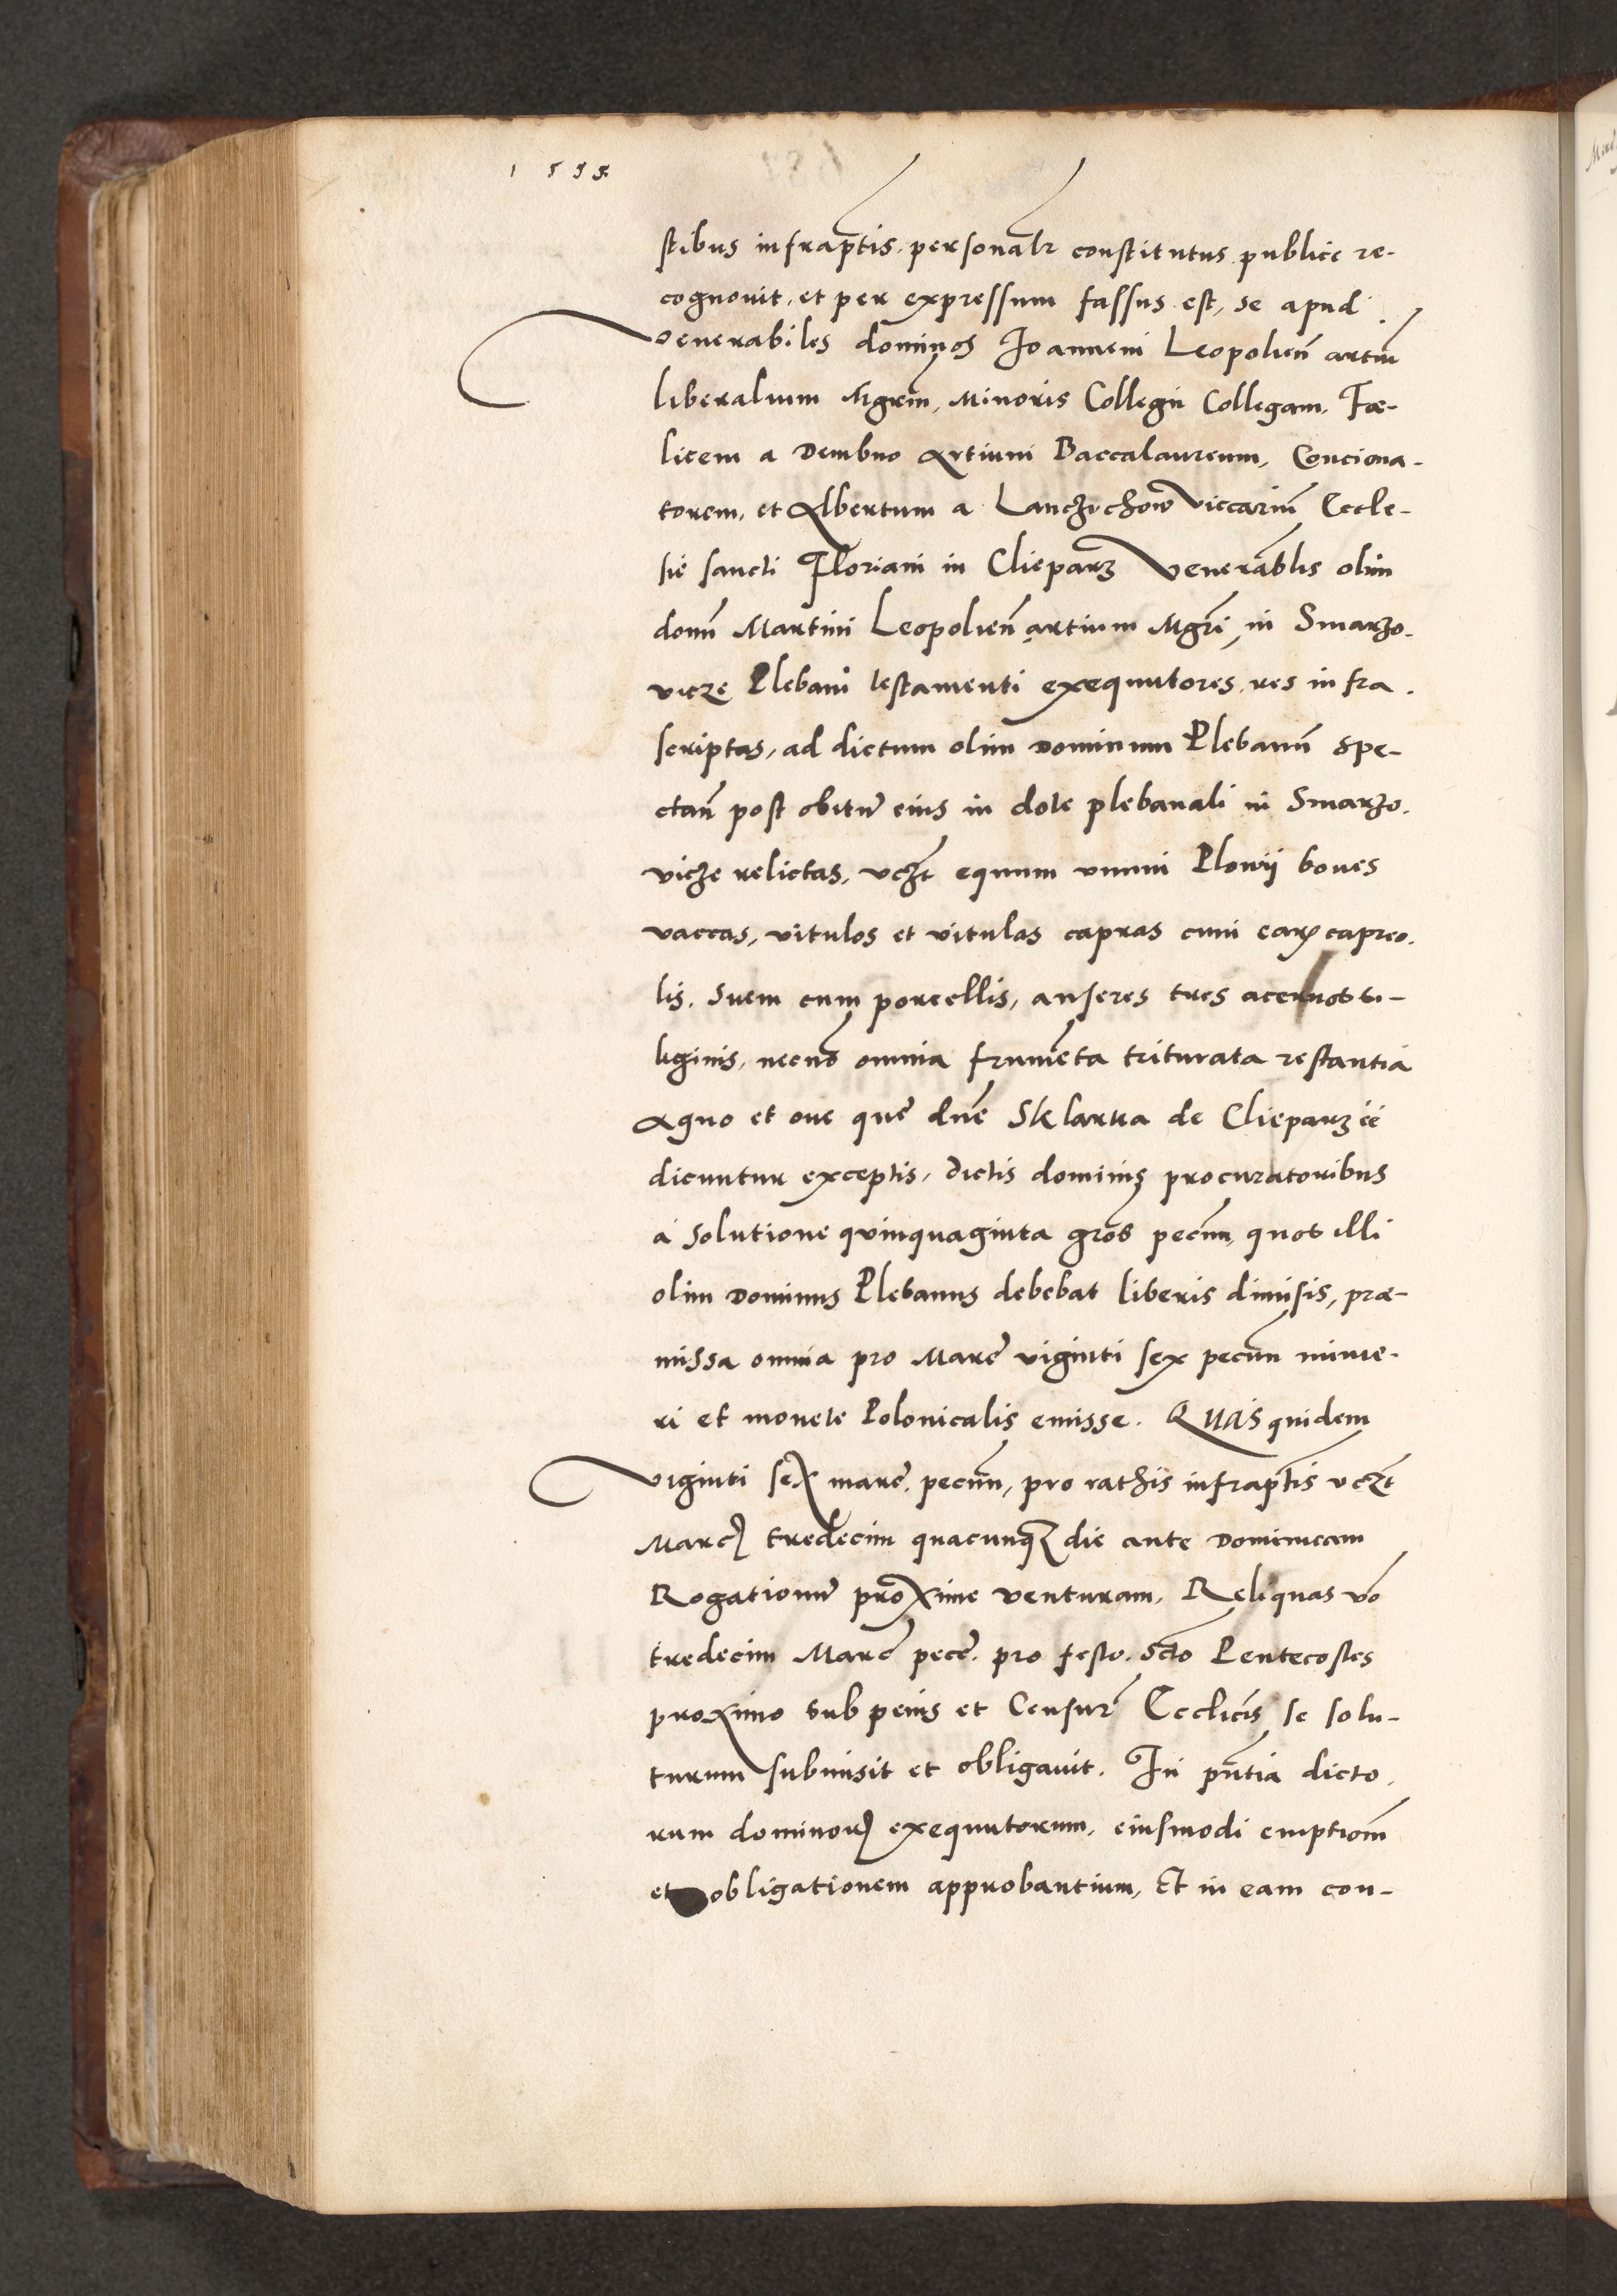 1555.
stibus infraptis personalr constitutus publice re-
cognouit, et per expressum fassus est, se apud
venerabiles dominos Joannem Leopolień artiū
liberalium Mgrm̄, Minoris Collegii Collegam, Fœ-
licem a Dembno Artium Baccalaureum, Conciona-
torem, et Albertum a Lanczichow Viccariū Eccle-
sie sancti Floriani in Clieparz Venerablis olim
domī Martini Leopolień artium Mgri, in Smarzo-
vicze Plebani testamenti exequutores, res infra-
scriptas, ad dictum olim dominum Plebanū spe-
ctań post obitū eius in dote plebanali in Smarzo-
vicze relictas, vczt equum unum Plowii boues
vaccas, vitulos et vitulas capras cum earꝝ capreo-
lis. Suem cum porcellis, anseres tres aceruos si-
liginis, necnō omnia frumēta triturata restantia
Agno et oue que dn̄e Sklarka de Clieparz eē
dicuntur exceptis, dictis dominis procuratoribus
a solutione quinquaginta gros̄ pecun̄, quos illi
olim dominus Plebanus debebat liberis dimisis, præ-
missa omnia pro Marc̄ viginti sex pecun̄ nume-
ri et monete Polonicalis emisse. QUAS quidem
viginti sex marc̄ pecun̄, pro rathis infraptis vczt
Marcꝭ tredecim quacunqꝫ die ante Dominicam
Rogationū proxime venturam, Reliquas vō
tredecim Marc̄ pecc̄. pro festo. Scto Pentecostes
proximo sub penis et Censur̄ Ecclicis se solu-
turum submisit et obligauit. In pn̄tia dicto-
rum dominorꝝ exequutorum, eiusmodi emptiom̄
et obligationem approbantium, Et in eam con-